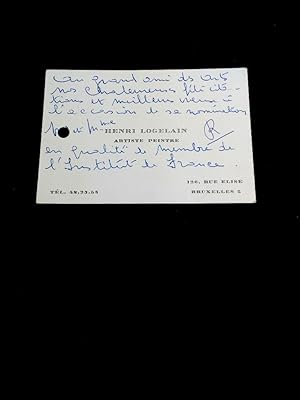 Au grand ami des Arts
nos chaleureuses félicita-
tions et meilleurs vœux à
l'occasion de sa nomination
M et Mme HENRI LOGELAIN
ARTISTE PEINTRE
en qualité de membre de
l'Institut de France.
126, RUE ELISE
TÉL. 48.23.58 BRUXELLES 5